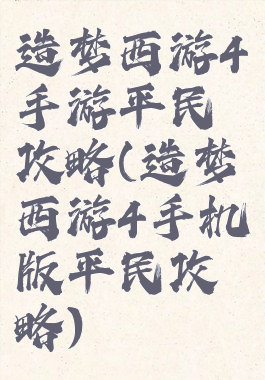 造梦西游4
手游平民
攻略(造梦
西游4手机
版平民攻
略)